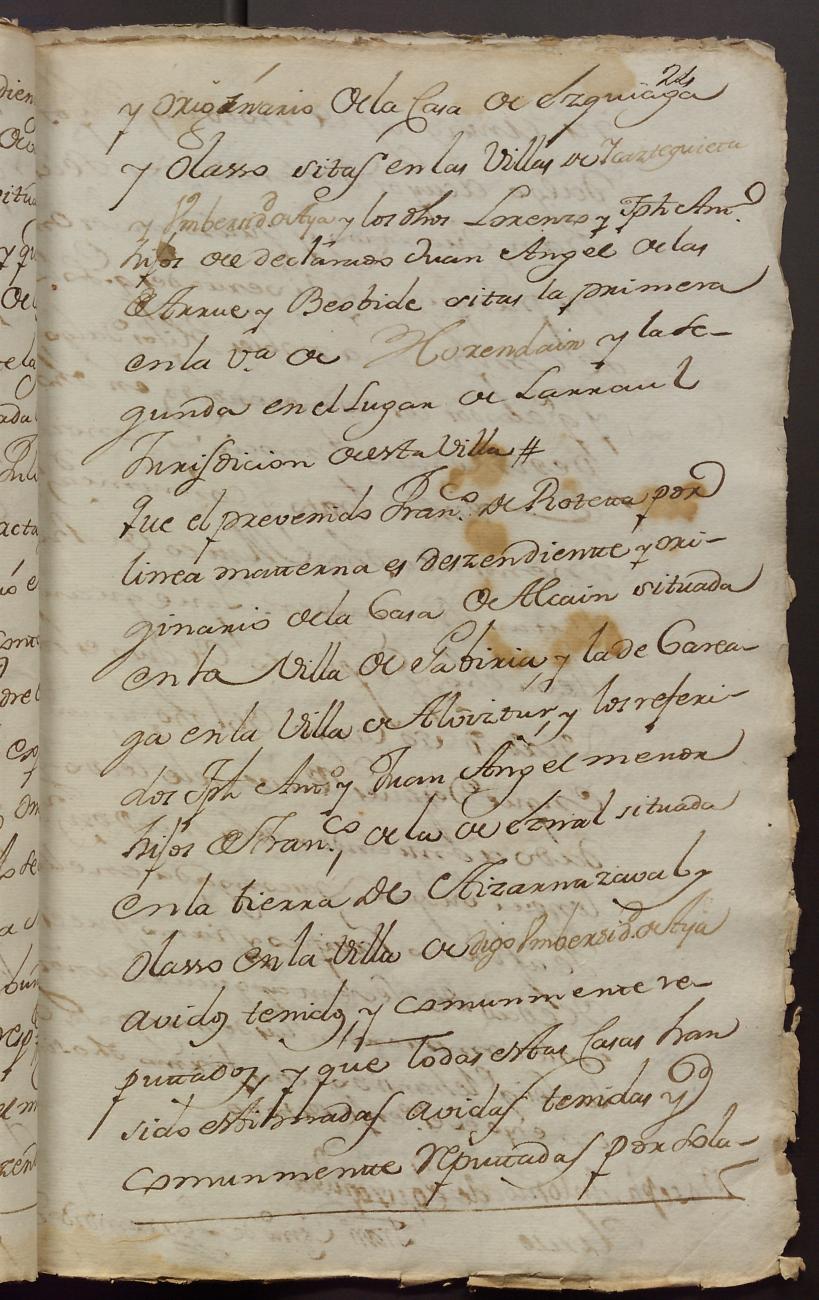 24
y originario de la Casa de Ezquiaga
y Olasso sitas en las Villas de Yarzteguieta
y Vnibersid.d de Aya y los dhos Lorenzo y Jph Ant.o
hijos de declarados Juan Angel de las
de Arrue y Beobide sitas la primera
en la v.a de Horendain y la se-
gunda en el Lugar de Larraul
Jurisdicion de esta Villa #
Que el prevenido Fran.co de Roteta por
linea matterna es deszendientte y ori-
ginario de la Casa de Alcain situada
en la Villa de Gabiria, y la de Garea-
ga en la Villa de Alvizttur, y los referi-
dos Jph Ant.o y Juan Angel menor
hijos de Fran.co, de la de Eznal situada
en la tierra de Aizarnazaval y
Olasso en la Villa de digo Vnibersid.d de Aya
avidos tenidos, y comunmente re-
puttados, y que todas estas Casas han
sido estimadas avidas tenidas y
comunmentte Reputtadas por sola-